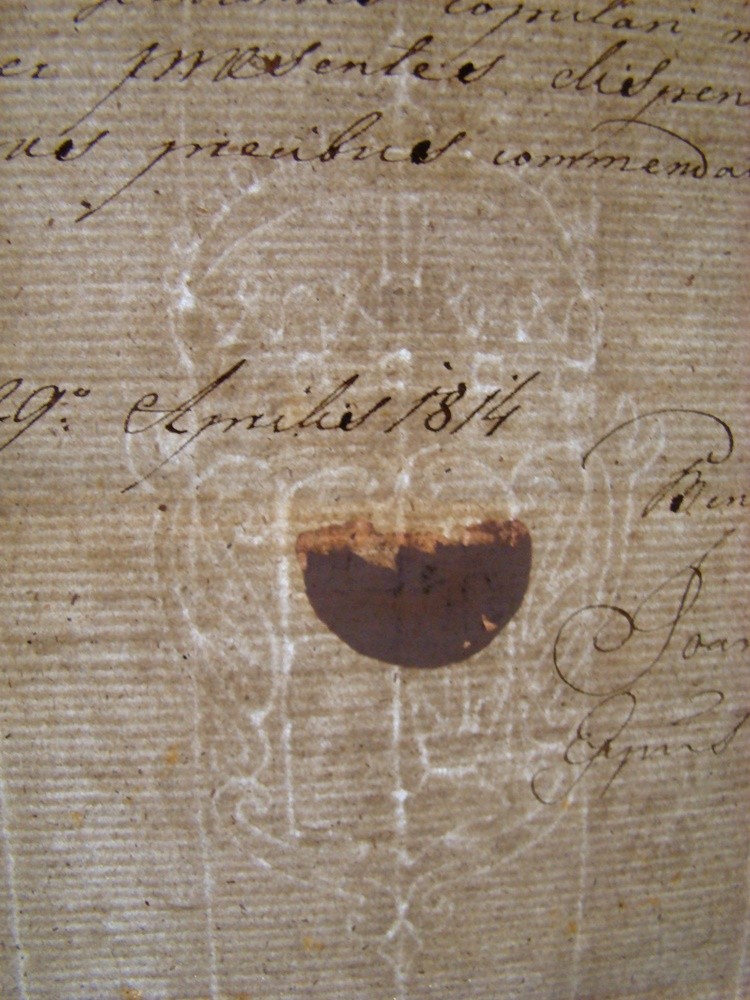 copulari
praesentes dispen
precibus commenda
29º: Aprilis 1814
Ben
Joan
Eppus